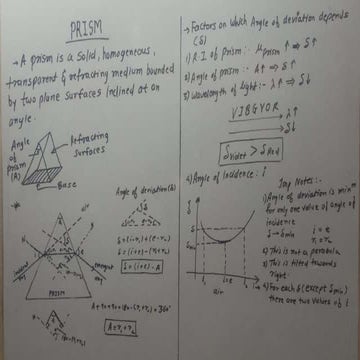 PRISM
→ A prism is a solid, homogeneous,
transparent & refracting medium bounded
by two plane surfaces inclined at an
angle.
Angle of prism (A)
Refracting surfaces
Base
Angle of deviation (δ)
δ = (i-r₁)+(e-r₂)
δ = (i+e)-(r₁+r₂)
δ = (i+e)-A
Incident ray
Emergent ray
PRISM
A+90+90+180-(r₁+r₂) = 360°
A = r₁+r₂
→ Factors on which Angle of deviation depends
(δ)
1) R.I. of prism:- μprism ↑ ⇒ δ↑
2) Angle of prism:- A↑ ⇒ δ↑
3) Wavelength of light:- λ↑ ⇒ δ↓
VIBGYOR
→ λ↑
→ δ↓
δViolet > δRed
4) Angle of Incidence: i
Imp Notes:-
1) Angle of deviation is minm
for only one value of angle of
incidence
δ → δmin
i = e
r₁ = r₂
2) This is not a parabola
3) This is tilted towards
right.
4) For each δ (except δmin)
there are two values of i
δ
δmin
i=e